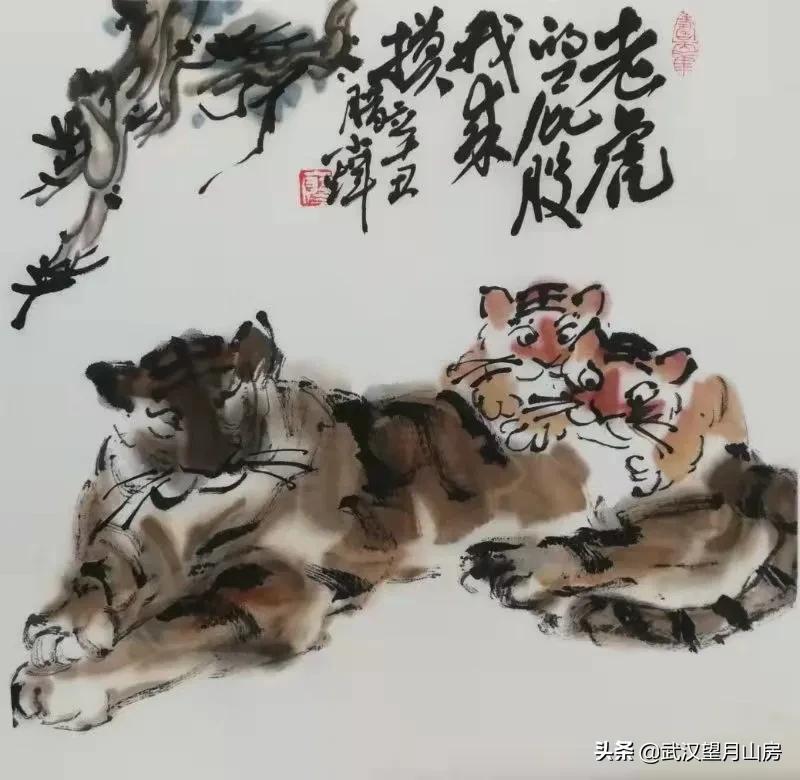 老虎
的屁股
我来
摸
辛丑
腊
头条 @武汉望月山房